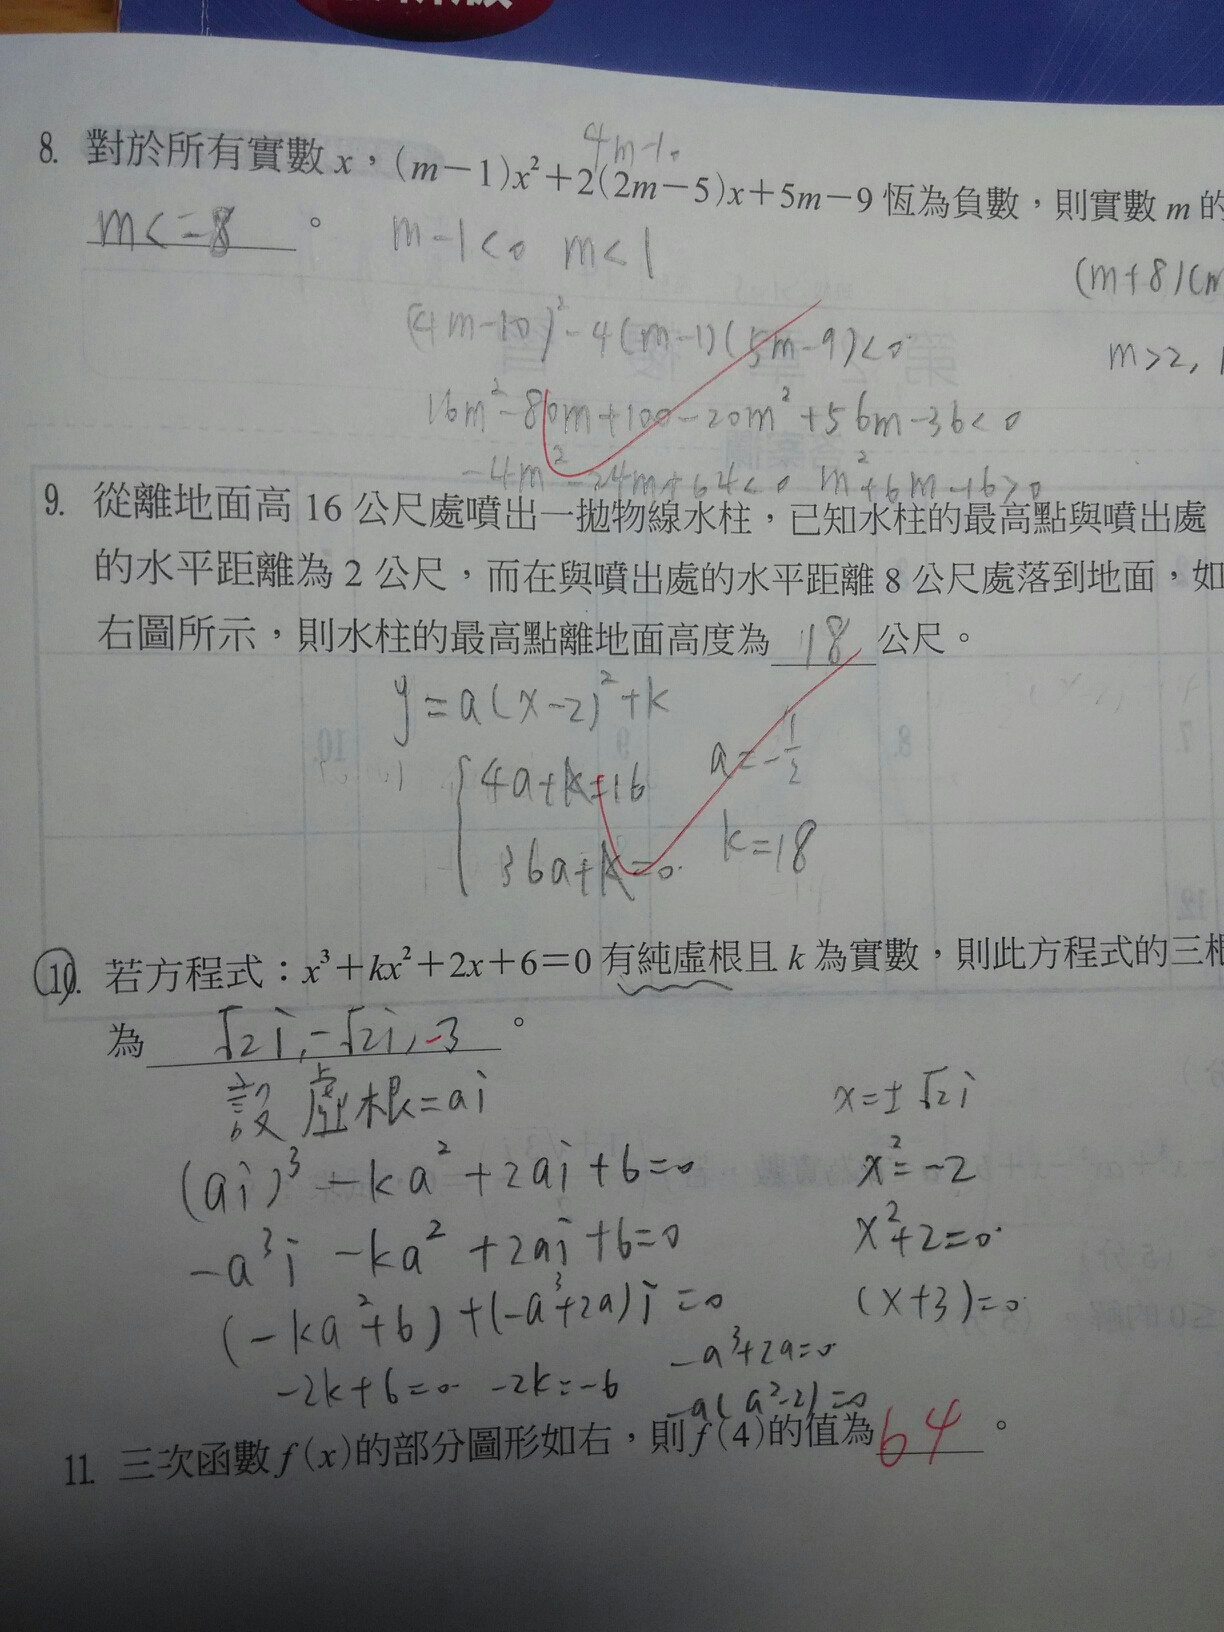 4m-10
8. 對於所有實數 x，(m－1)x²＋2(2m－5)x＋5m－9 恆為負數，則實數 m 的
m<=-8 。 m-1<0 m<1
(m+8)(m
(4m-10)²-4(m-1)(5m-9)<0
m>2,
16m²-80m+100-20m²+56m-36<0
-4m²-24m+64<0 m²+6m-16>0
9. 從離地面高 16 公尺處噴出一拋物線水柱，已知水柱的最高點與噴出處
的水平距離為 2 公尺，而在與噴出處的水平距離 8 公尺處落到地面，如
右圖所示，則水柱的最高點離地面高度為 18 公尺。
y=a(x-2)²+k
4a+k=16 a=-1/2
36a+k=0 k=18
10. 若方程式：x³＋kx²＋2x＋6＝0 有純虛根且 k 為實數，則此方程式的三根
為 √2i,-√2i,-3 。
設虛根=ai x=±√2i
(ai)³-ka²+2ai+6=0 x²=-2
-a³i-ka²+2ai+6=0 x²+2=0
(-ka²+6)+(-a³+2a)i=0 (x+3)=0
-2k+6=0 -2k=-6 -a³+2a=0
-a(a²-2)=0
11. 三次函數 f(x)的部分圖形如右，則 f(4)的值為 64 。